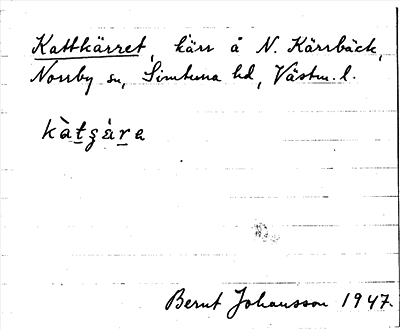 Kattkärret, kärr å N. Kärrbäck,
Norrby sn, Simtuna hd, Västm. l.
kàt̠ʂɑ̀r̠a
Bernt Johansson 1947.